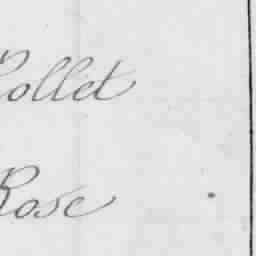 Collet
Rose